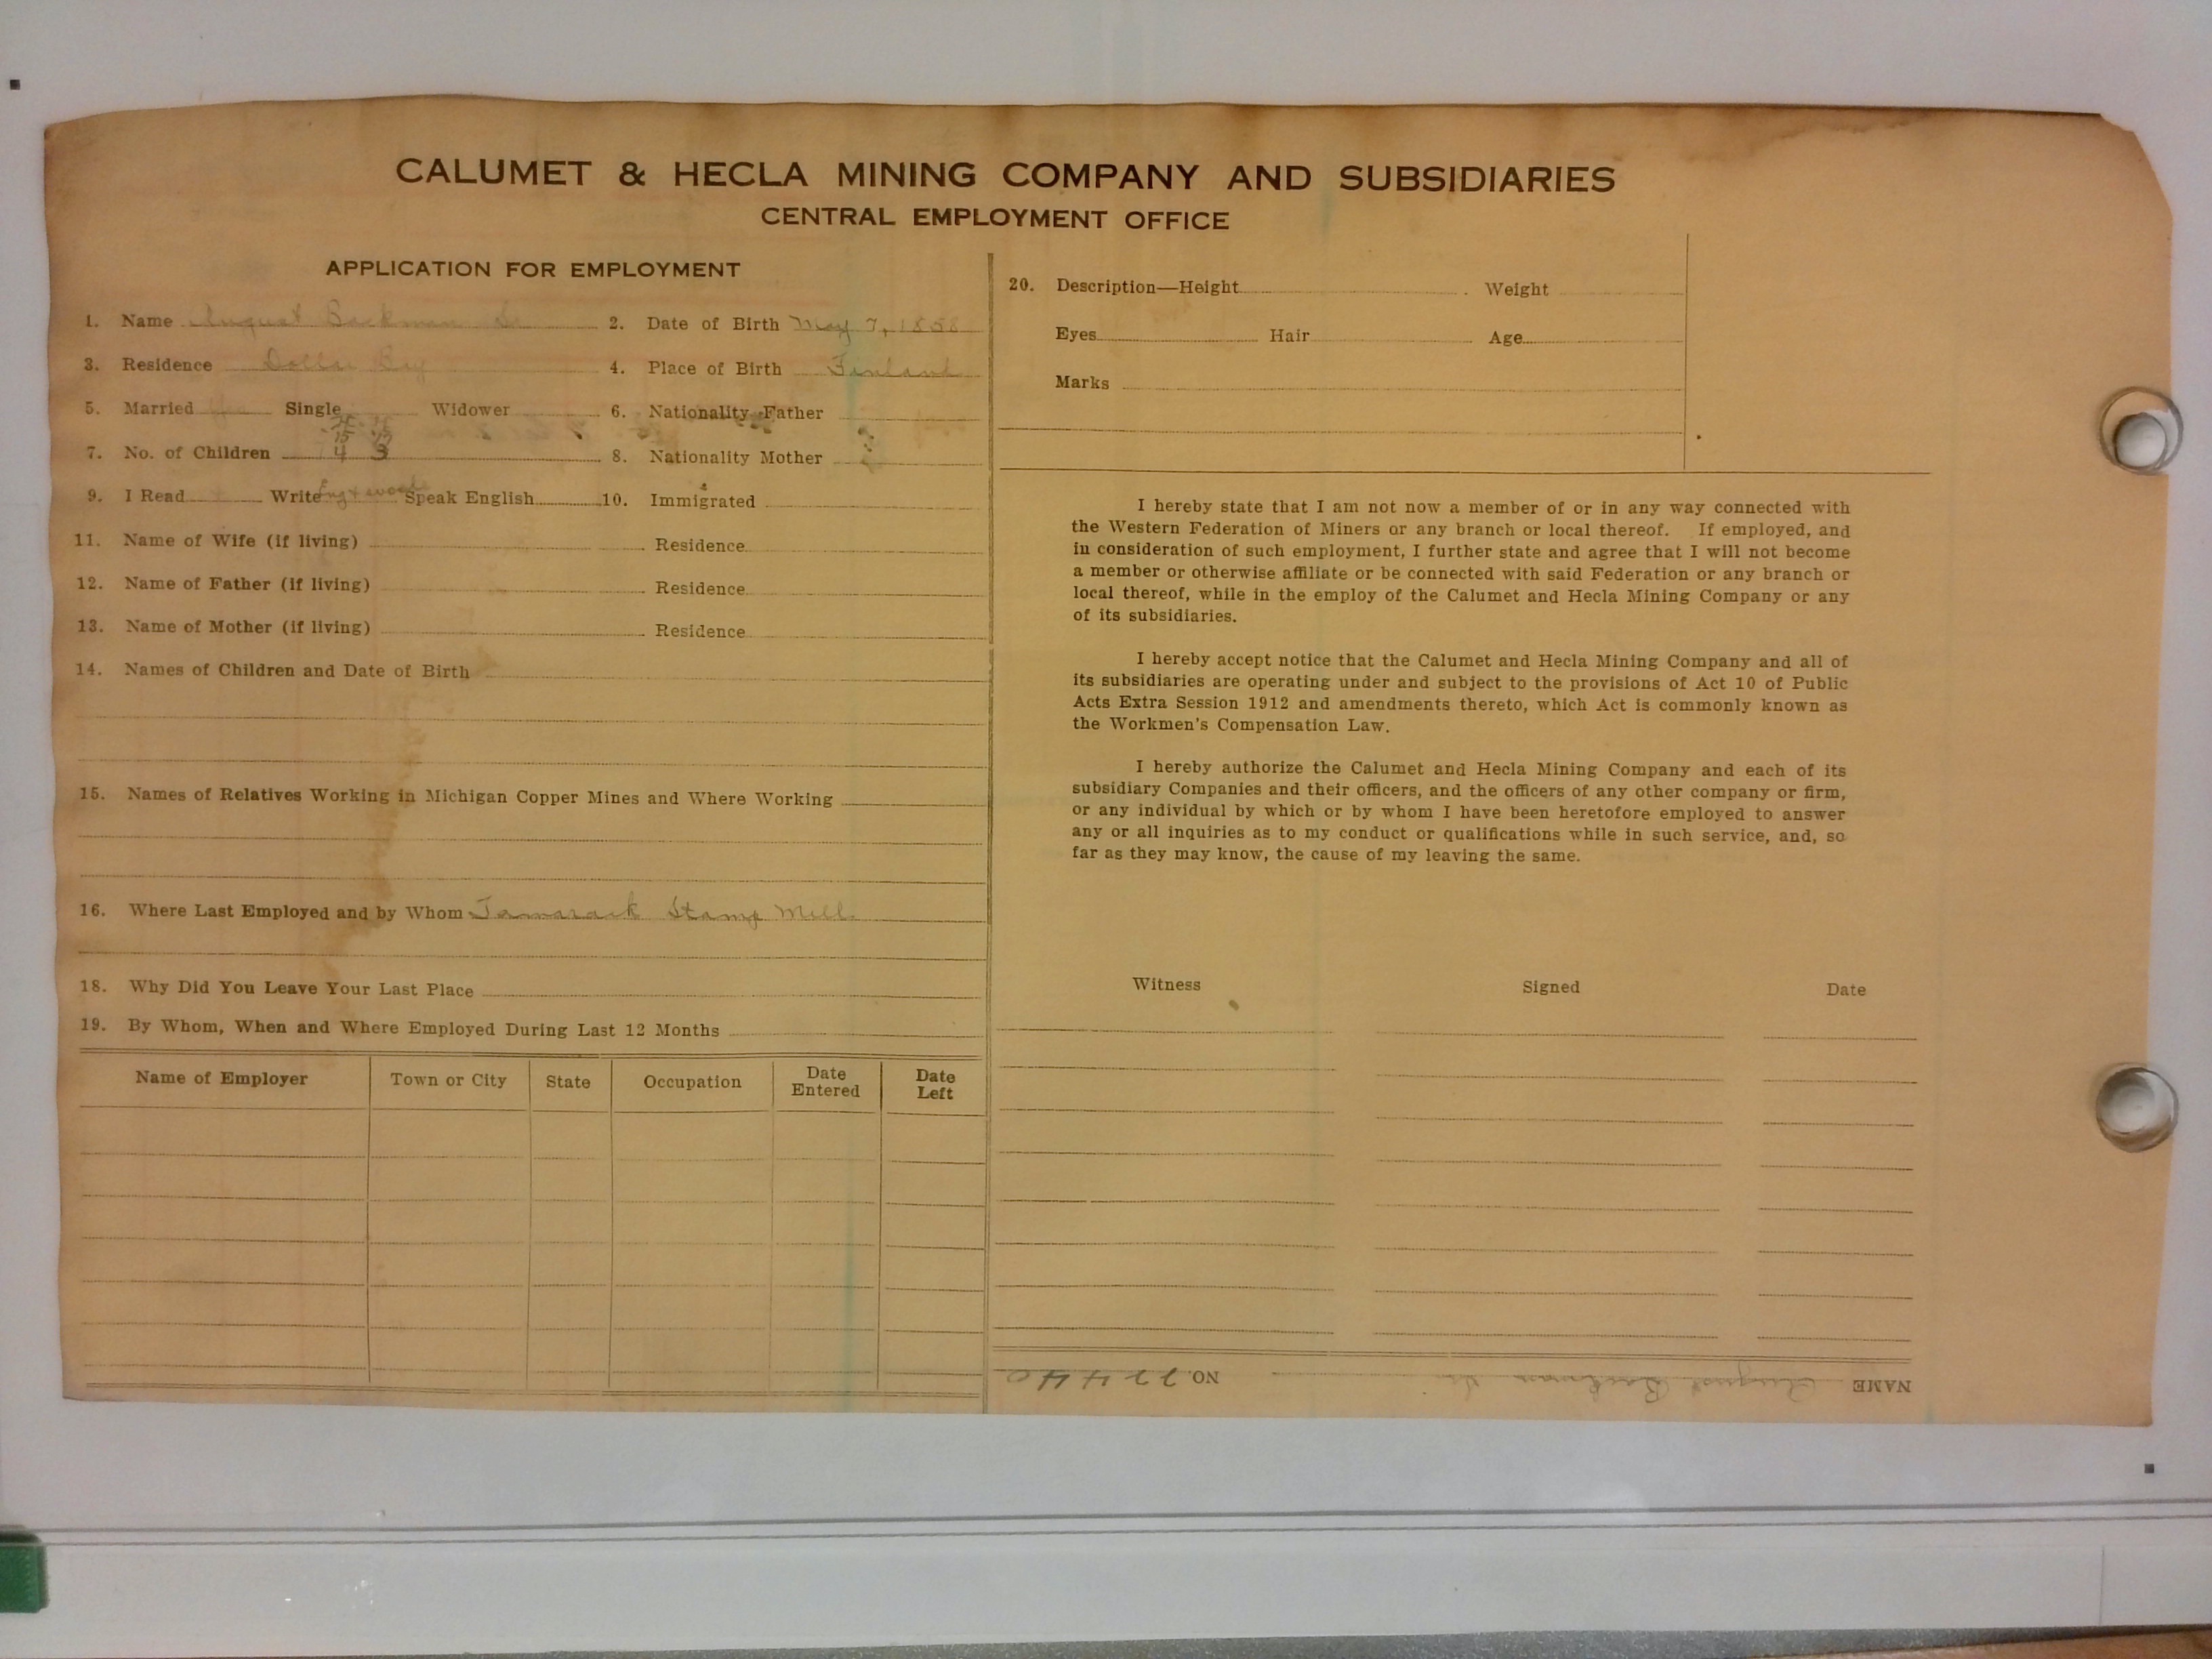 CALUMET & HECLA MINING COMPANY AND SUBSIDIARIES
CENTRAL EMPLOYMENT OFFICE
APPLICATION FOR EMPLOYMENT
1. Name August Backman Sr 2. Date of Birth May 7, 1858
3. Residence Dollar Bay 4. Place of Birth Finland
5. Married Yes Single Widower 6. Nationality Father
7. No. of Children 4 3 8. Nationality Mother
9. I Read Write Speak English 10. Immigrated
11. Name of Wife (if living) Residence
12. Name of Father (if living) Residence
13. Name of Mother (if living) Residence
14. Names of Children and Date of Birth
15. Names of Relatives Working in Michigan Copper Mines and Where Working
16. Where Last Employed and by Whom Tamarack Stamp Mill
18. Why Did You Leave Your Last Place
19. By Whom, When and Where Employed During Last 12 Months
Name of Employer Town or City State Occupation Date Entered Date Left
20. Description—Height Weight
Eyes Hair Age
Marks
I hereby state that I am not now a member of or in any way connected with
the Western Federation of Miners or any branch or local thereof. If employed, and
in consideration of such employment, I further state and agree that I will not become
a member or otherwise affiliate or be connected with said Federation or any branch or
local thereof, while in the employ of the Calumet and Hecla Mining Company or any
of its subsidiaries.
I hereby accept notice that the Calumet and Hecla Mining Company and all of
its subsidiaries are operating under and subject to the provisions of Act 10 of Public
Acts Extra Session 1912 and amendments thereto, which Act is commonly known as
the Workmen's Compensation Law.
I hereby authorize the Calumet and Hecla Mining Company and each of its
subsidiary Companies and their officers, and the officers of any other company or firm,
or any individual by which or by whom I have been heretofore employed to answer
any or all inquiries as to my conduct or qualifications while in such service, and, so
far as they may know, the cause of my leaving the same.
Witness Signed Date
NAME August Backman Sr. NO. 22440